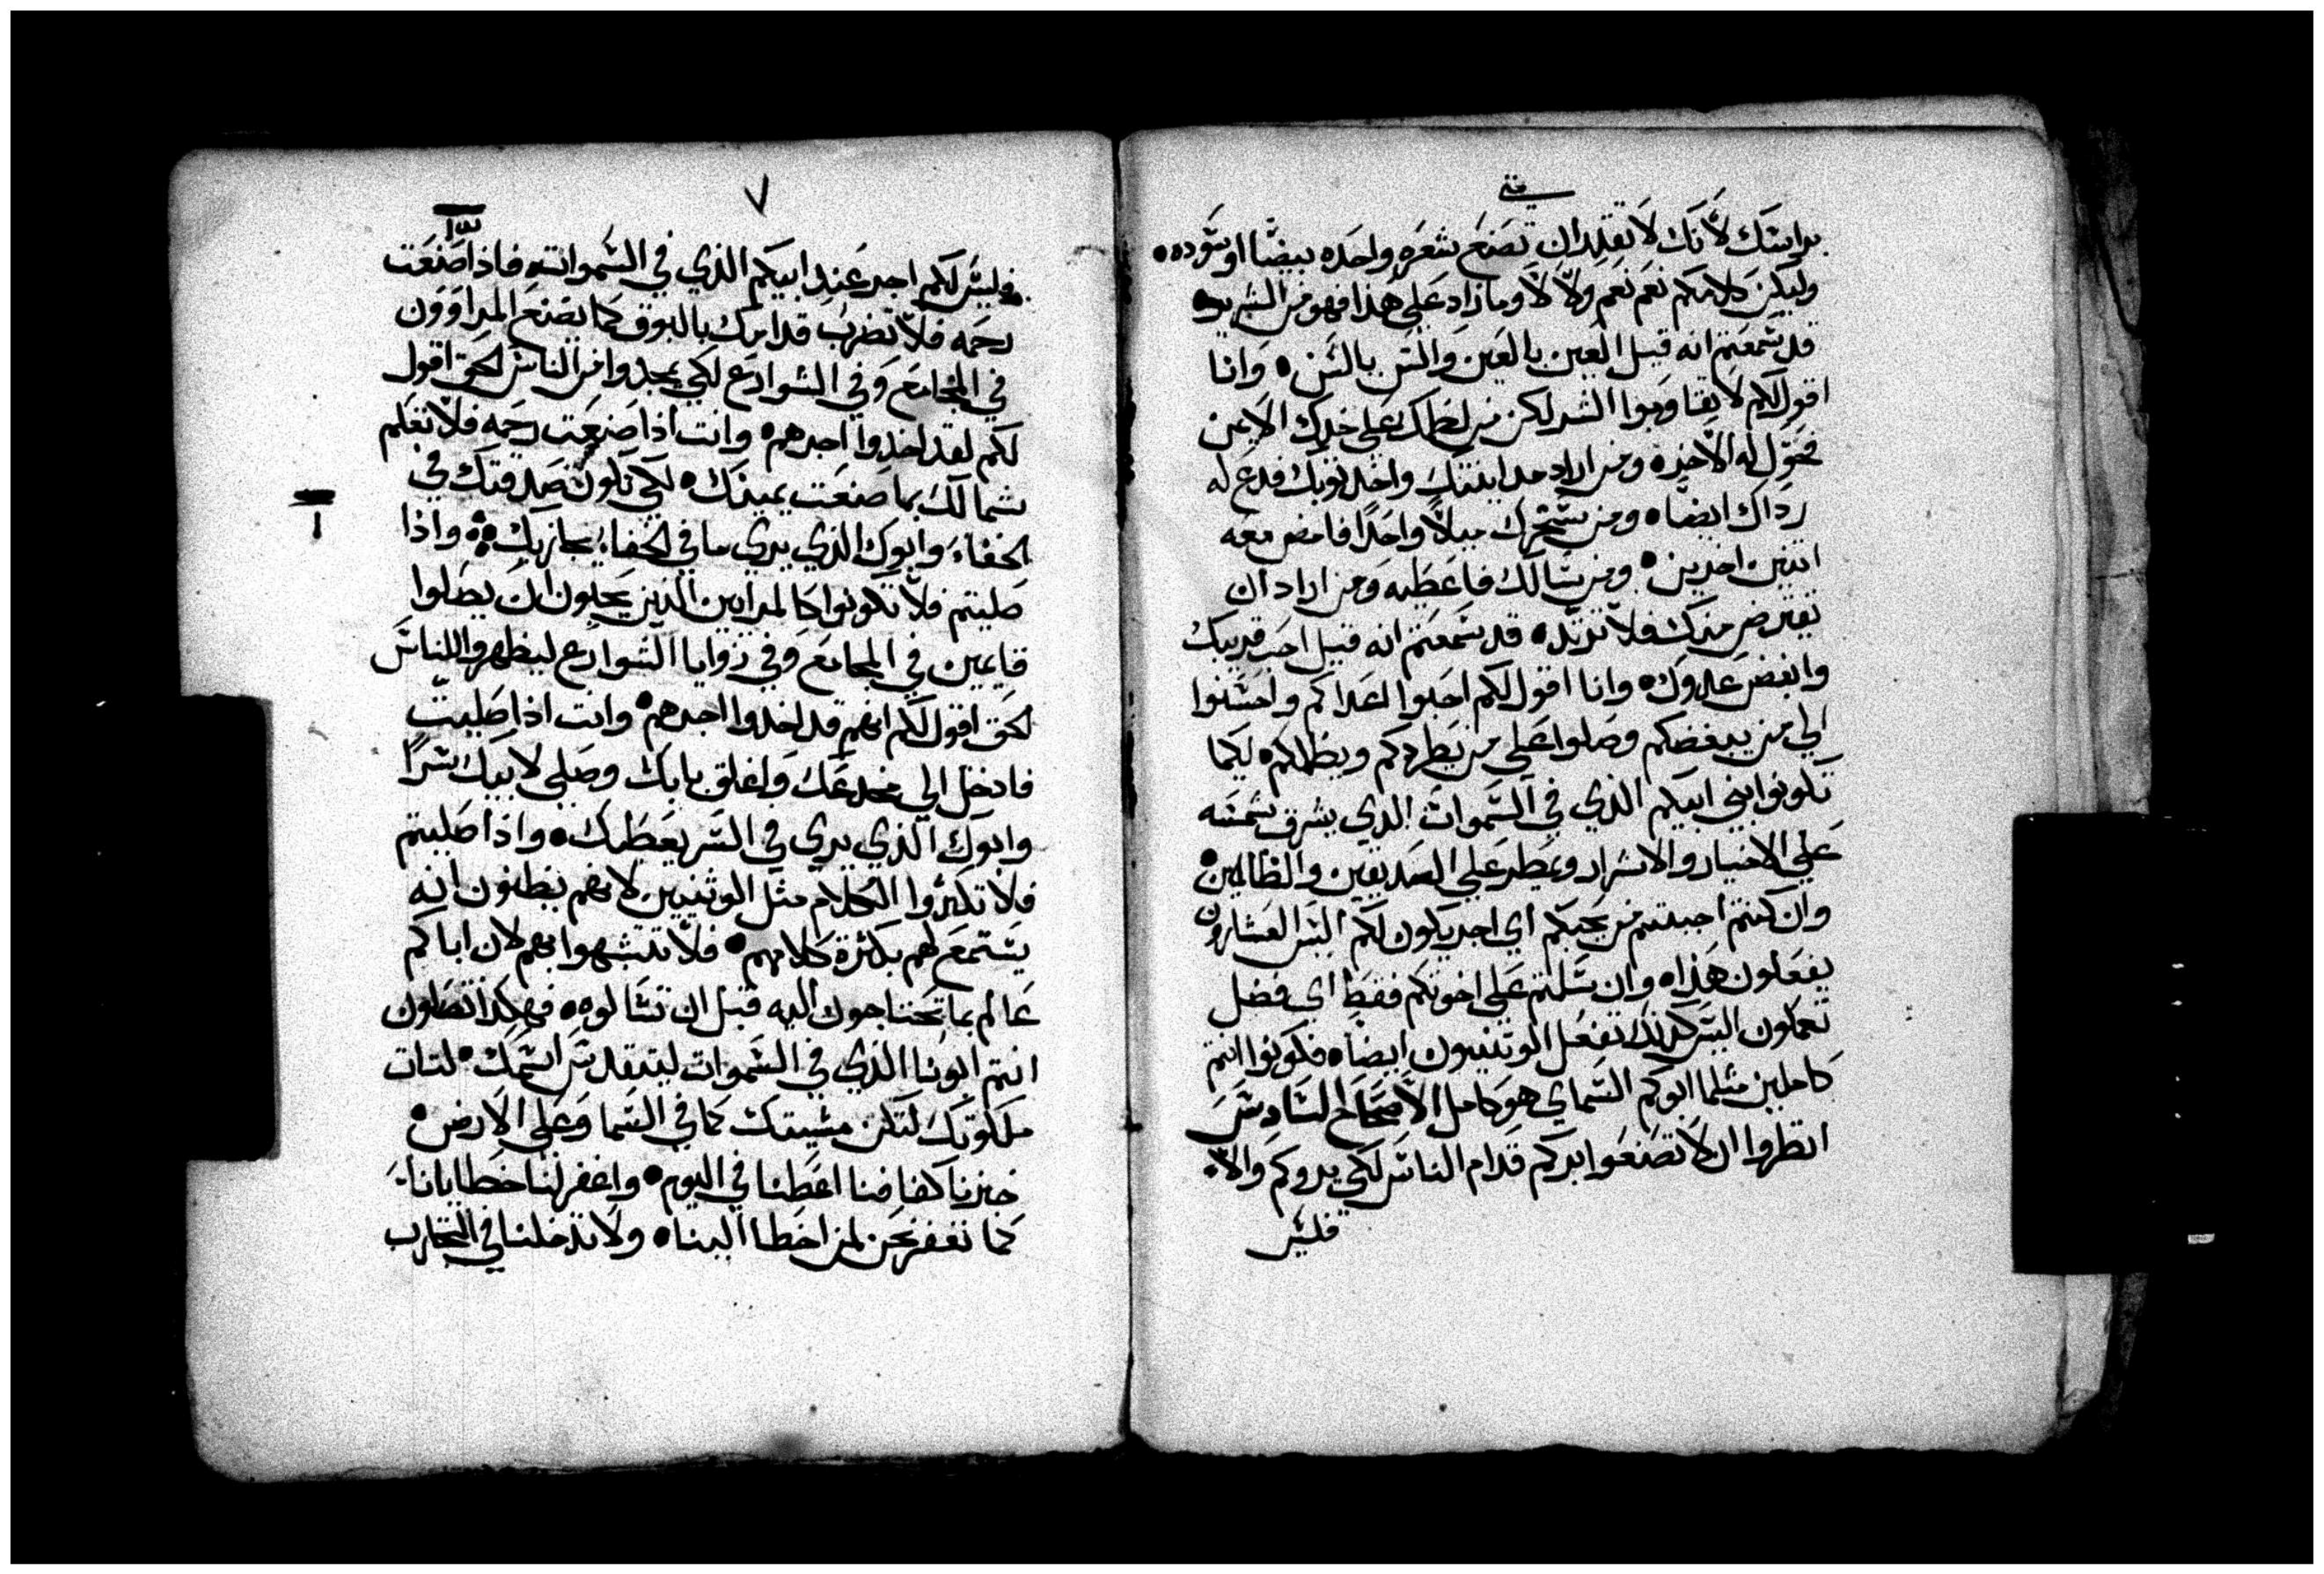 متى
براسك لانك لا تقدر ان تصنع شعره واحده بيضا او سوده
وليكن كلامكم نعم نعم ولا لا وما زاد على هذا فهو من الشرير
قد سمعتم انه قيل العين بالعين والسن بالسن وانا
اقول لكم لا تقاوموا الشر لكن من لطمك على خدك الايمن
فحول له الاخر ومن اراد مداينتك واخذ ثوبك فدع له
رداك ايضا ومن يسخرك ميلا واحدا فامض معه
اتنين اخرين ومن يسالك فاعطيه ومن اراد ان
تقترض منك فلا ترده قد سمعتم انه قيل احب قريبك
وابغض عدوك وانا اقول لكم احبوا اعداكم واحسنوا
الي من يبغضكم وصلوا على من يطردكم ويظلمكم لكيما
تكونوا بني ابيكم الذي في السموات الذي يشرق شمسه
علي الاخيار والاشرار ويمطر علي الصديقين والظالمين
وان كنتم احببتم من يحبكم اي اجر يكون لكم اليس العشارون
يفعلون هذا وان سلمتم علي اخوتكم فقط اي فضل
تعملون اليس كذلك تفعل الوتنيون ايضا فكونوا انتم
كاملين مثلما ابوكم السماي هو كامل الاصحاح السادس
انظروا ان لا تصنعوا بركم قدام الناس لكي يروكم والا
فليس
٧
فليس لكم اجر عند ابيكم الذي في السموات فاذا صنعت
رحمه فلا تضرب قدامك بالبوق كما يصنع المراوون
في المجامع وفي الشوارع لكي يمجدوا من الناس الحق اقول
لكم لقد اخذوا اجرهم وانت اذا صنعت رحمه فلا تعلم
شمالك بما صنعت يمينك لكي تكون صدقتك في
الخفاء وابوك الذي يري ما في الخفاء يجازيك واذا
صليتم فلا تكونوا كالمرايين الذين يحبون ان يصلوا
قايمين في المجامع وفي زوايا الشوارع ليظهروا للناس
الحق اقول لكم انهم قد اخذوا اجرهم وانت اذا صليت
فادخل الي مخدعك واغلق بابك وصلي لابيك سرا
وابوك الذي يري في السر يعطيك واذا صليتم
فلا تكثروا الكلام مثل الوثنيين لانهم يظنون انه
يستمع لهم بكثرة كلامهم فلا تتشبهوا بهم لان اباكم
عالم بما تحتاجون اليه قبل ان تسالوه فهكذا تصلون
انتم ابونا الذي في السموات ليتقدس اسمك لتات
ملكوتك لتكن مشيتك كما في السما وعلي الارض
خبزنا كفافنا اعطنا في اليوم واغفر لنا خطايانا
كما نغفر نحن لمن اخطا الينا ولا تدخلنا في التجارب